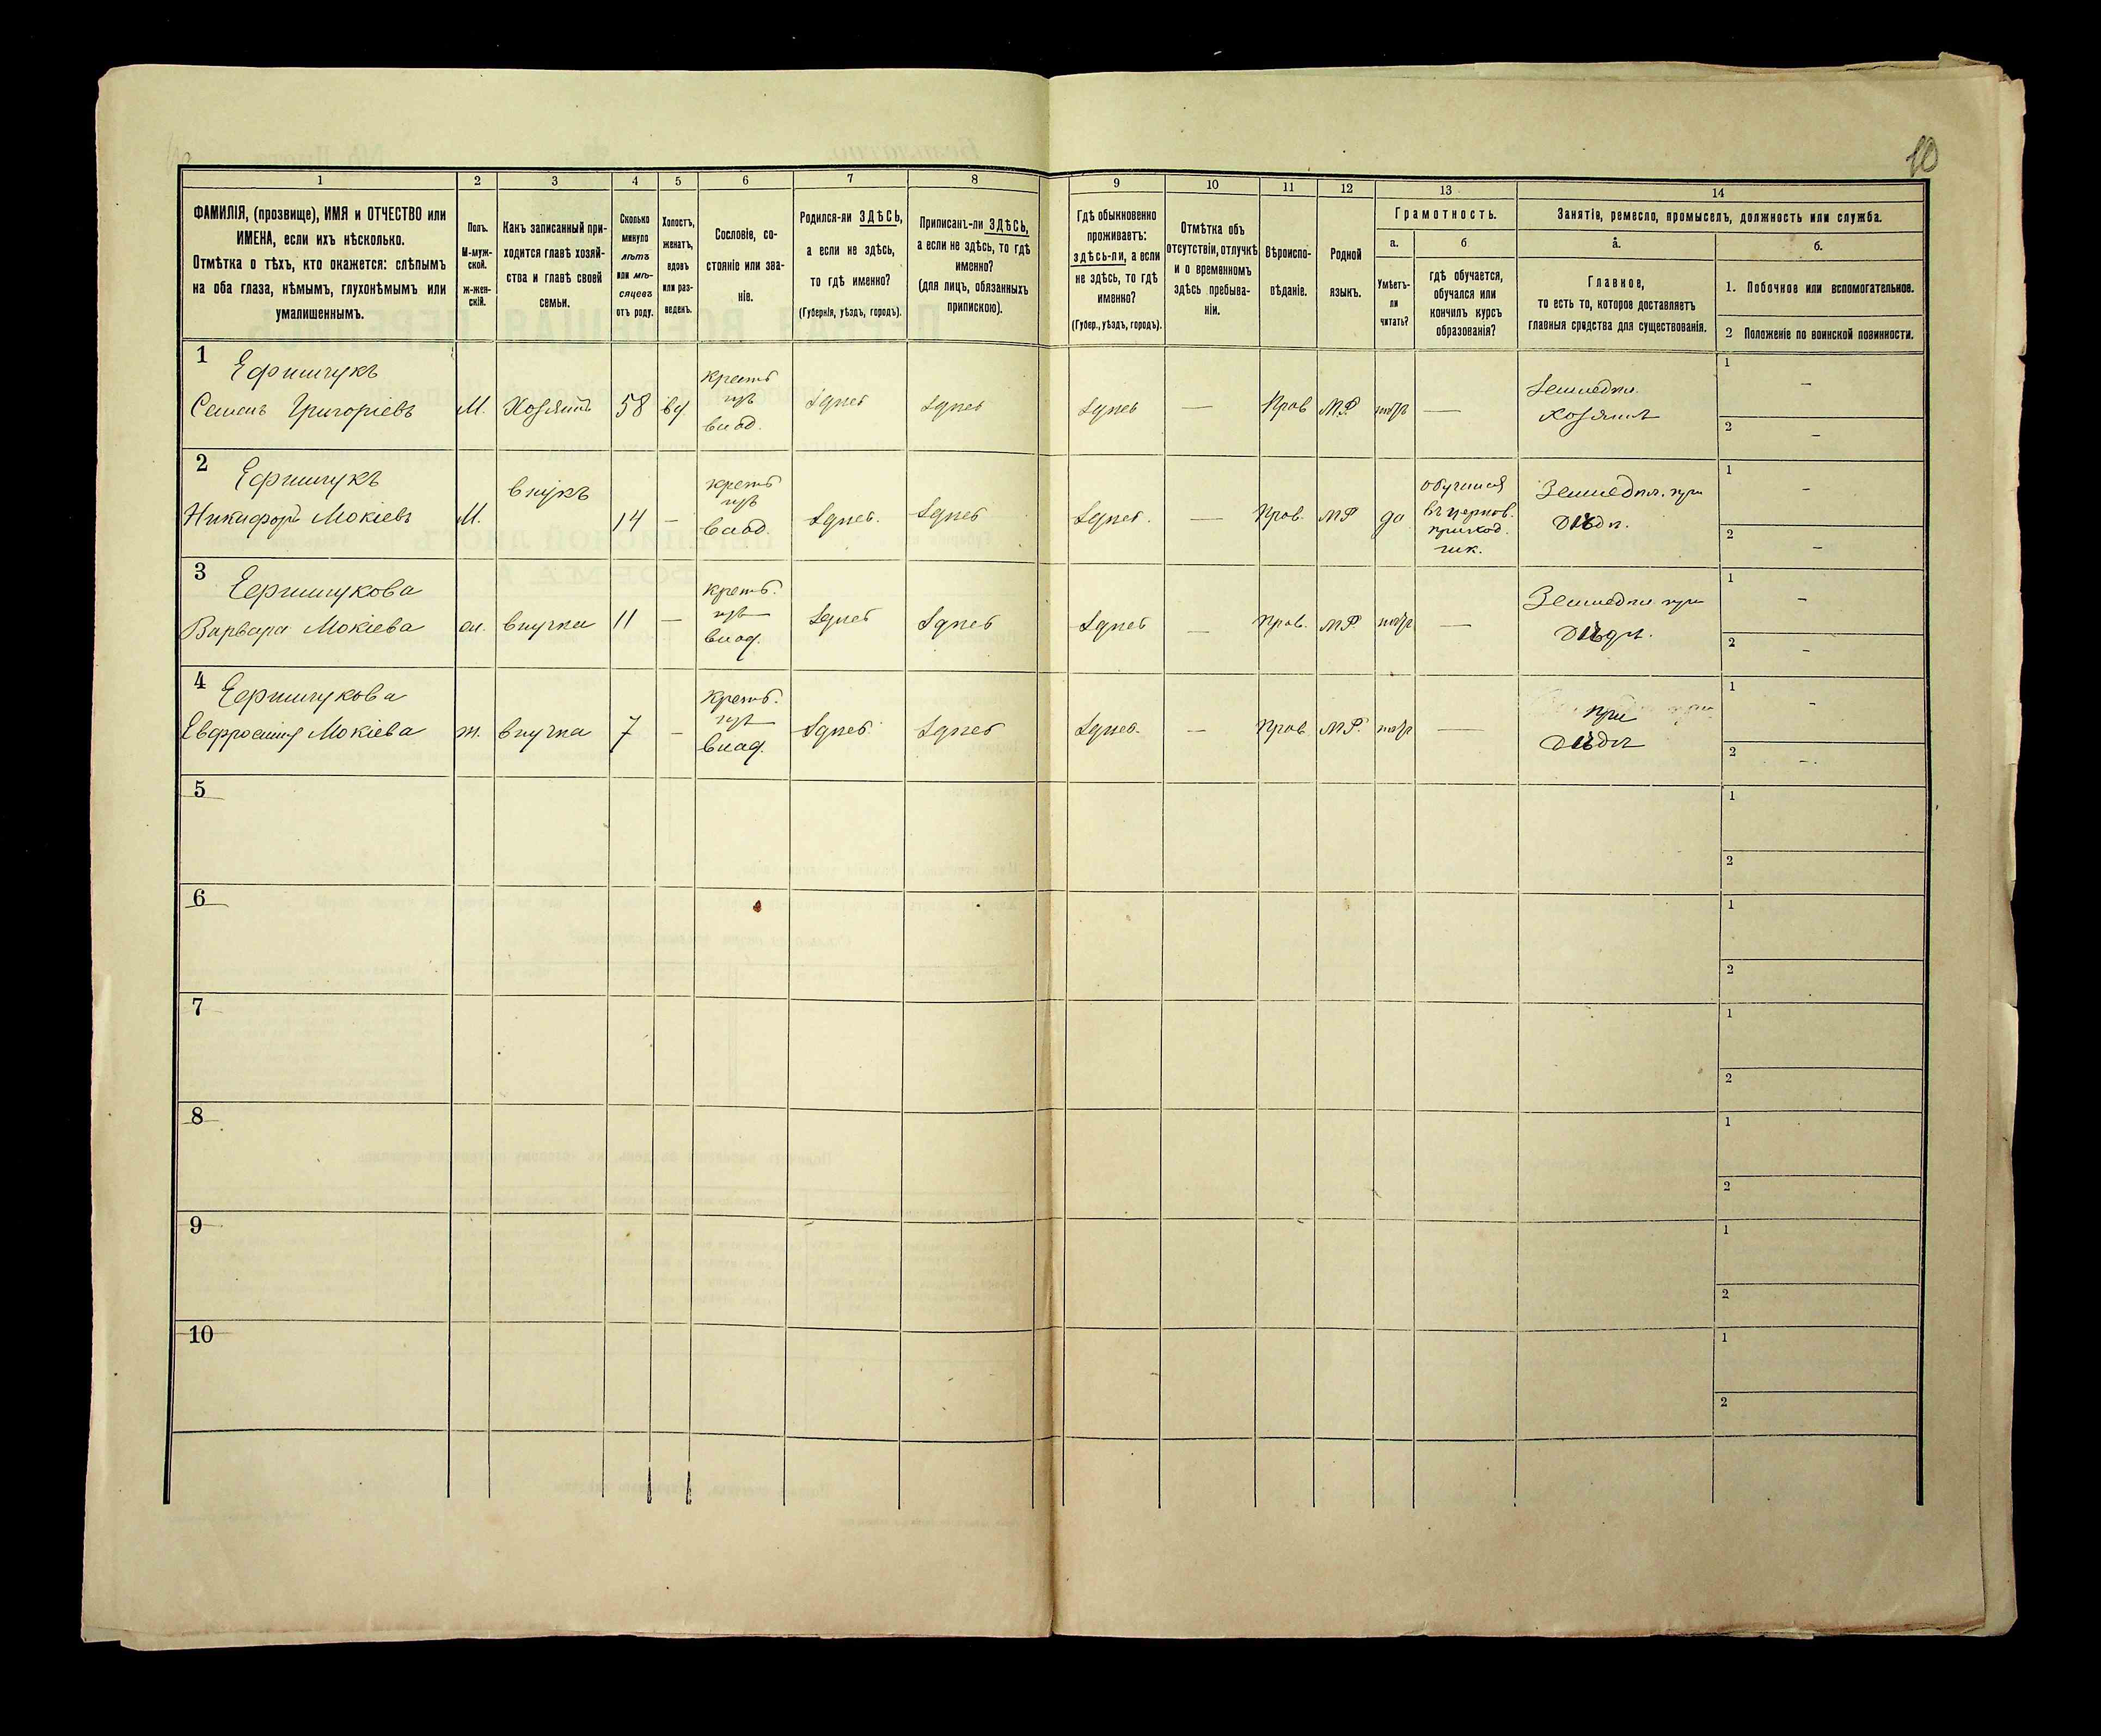 10
1 2 3 4 5 6 7 8 9 10 11 12 13 14
ФАМИЛІЯ, (прозвище), ИМЯ и ОТЧЕСТВО или
ИМЕНА, если ихъ нѣсколько.
Отмѣтка о тѣхъ, кто окажется: слѣпымъ
на оба глаза, нѣмымъ, глухонѣмымъ или
умалишеннымъ.
Полъ.
М-муж-
ской.
ж-жен-
скій.
Какъ записанный при-
ходится главѣ хозяй-
ства и главѣ своей
семьи.
Сколько
минуло
лѣтъ
или мѣ-
сяцевъ
отъ роду.
Холостъ,
женатъ,
вдовъ
или раз-
веденъ.
Сословіе, со-
стояніе или зва-
ніе.
Родился-ли ЗДѢСЬ,
а если не здѣсь,
то гдѣ именно?
(Губернія, уѣздъ, городъ).
Приписанъ-ли ЗДѢСЬ,
а если не здѣсь, то гдѣ
именно?
(для лицъ, обязанныхъ
припискою).
Гдѣ обыкновенно
проживаетъ:
здѣсь-ли, а если
не здѣсь, то гдѣ
именно?
(Губер., уѣздъ, городъ).
Отмѣтка объ
отсутствіи, отлучкѣ
и о временномъ
здѣсь пребыва-
ніи.
Вѣроиспо-
вѣданіе.
Родной
языкъ.
Грамотность.
а.
Умѣетъ-
ли
читать?
б
гдѣ обучается,
обучался или
кончилъ курсъ
образованія?
Занятіе, ремесло, промыселъ, должность или служба.
а.
Главное,
то есть то, которое доставляетъ
главныя средства для существованія.
б.
1. Побочное или вспомогательное.
2 Положеніе по воинской повинности.
1
Ефимчукъ
Семенъ Григоріевъ
М.
Хозяинъ
58
вд
крестъ
изъ
влад.
здѣсь
здѣсь
здѣсь
—
Прав
М.Р.
нѣтъ
—
Земледѣл.
хозяинъ
1 —
2 —
2
Ефимчукъ
Никифоръ Мокіевъ
М.
внукъ
14
—
крест
изъ
влад.
здѣсь.
здѣсь
здѣсь.
—
Прав.
М.Р
да
обучался
въ церков.
приход.
шк.
Земледѣл. при
дѣдѣ.
1 —
2 —
3
Ефимчукова
Варвара Мокіева
ж.
внучка
11
—
крест.
изъ
влад.
здѣсь
здѣсь
здѣсь
—
Прав.
М.Р.
нѣтъ
—
Земледѣл. при
дѣдѣ.
1 —
2 —
4
Ефимчукова
Евфросинія Мокіева
ж.
внучка
7
—
Крест.
изъ
влад.
здѣсь
здѣсь
здѣсь.
—
Прав
М.Р.
нѣтъ
—
при
дѣдѣ
1 —
2 —
5
1
2
6
1
2
7
1
2
8
1
2
9
1
2
10
1
2